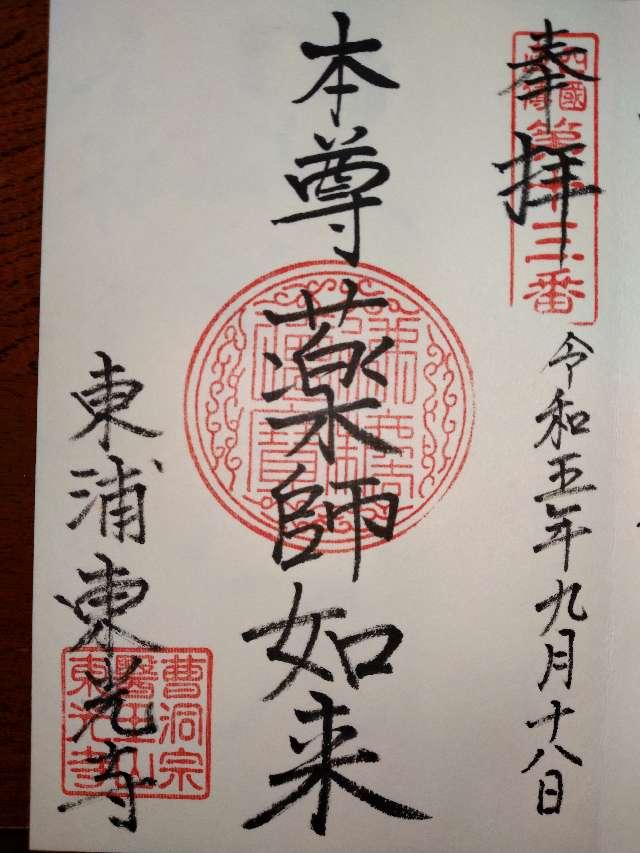 奉拝
三番
令和五年九月十八日
本尊薬師如来
佛法僧寶
東浦東光寺
曹洞宗
醫王山
東光寺